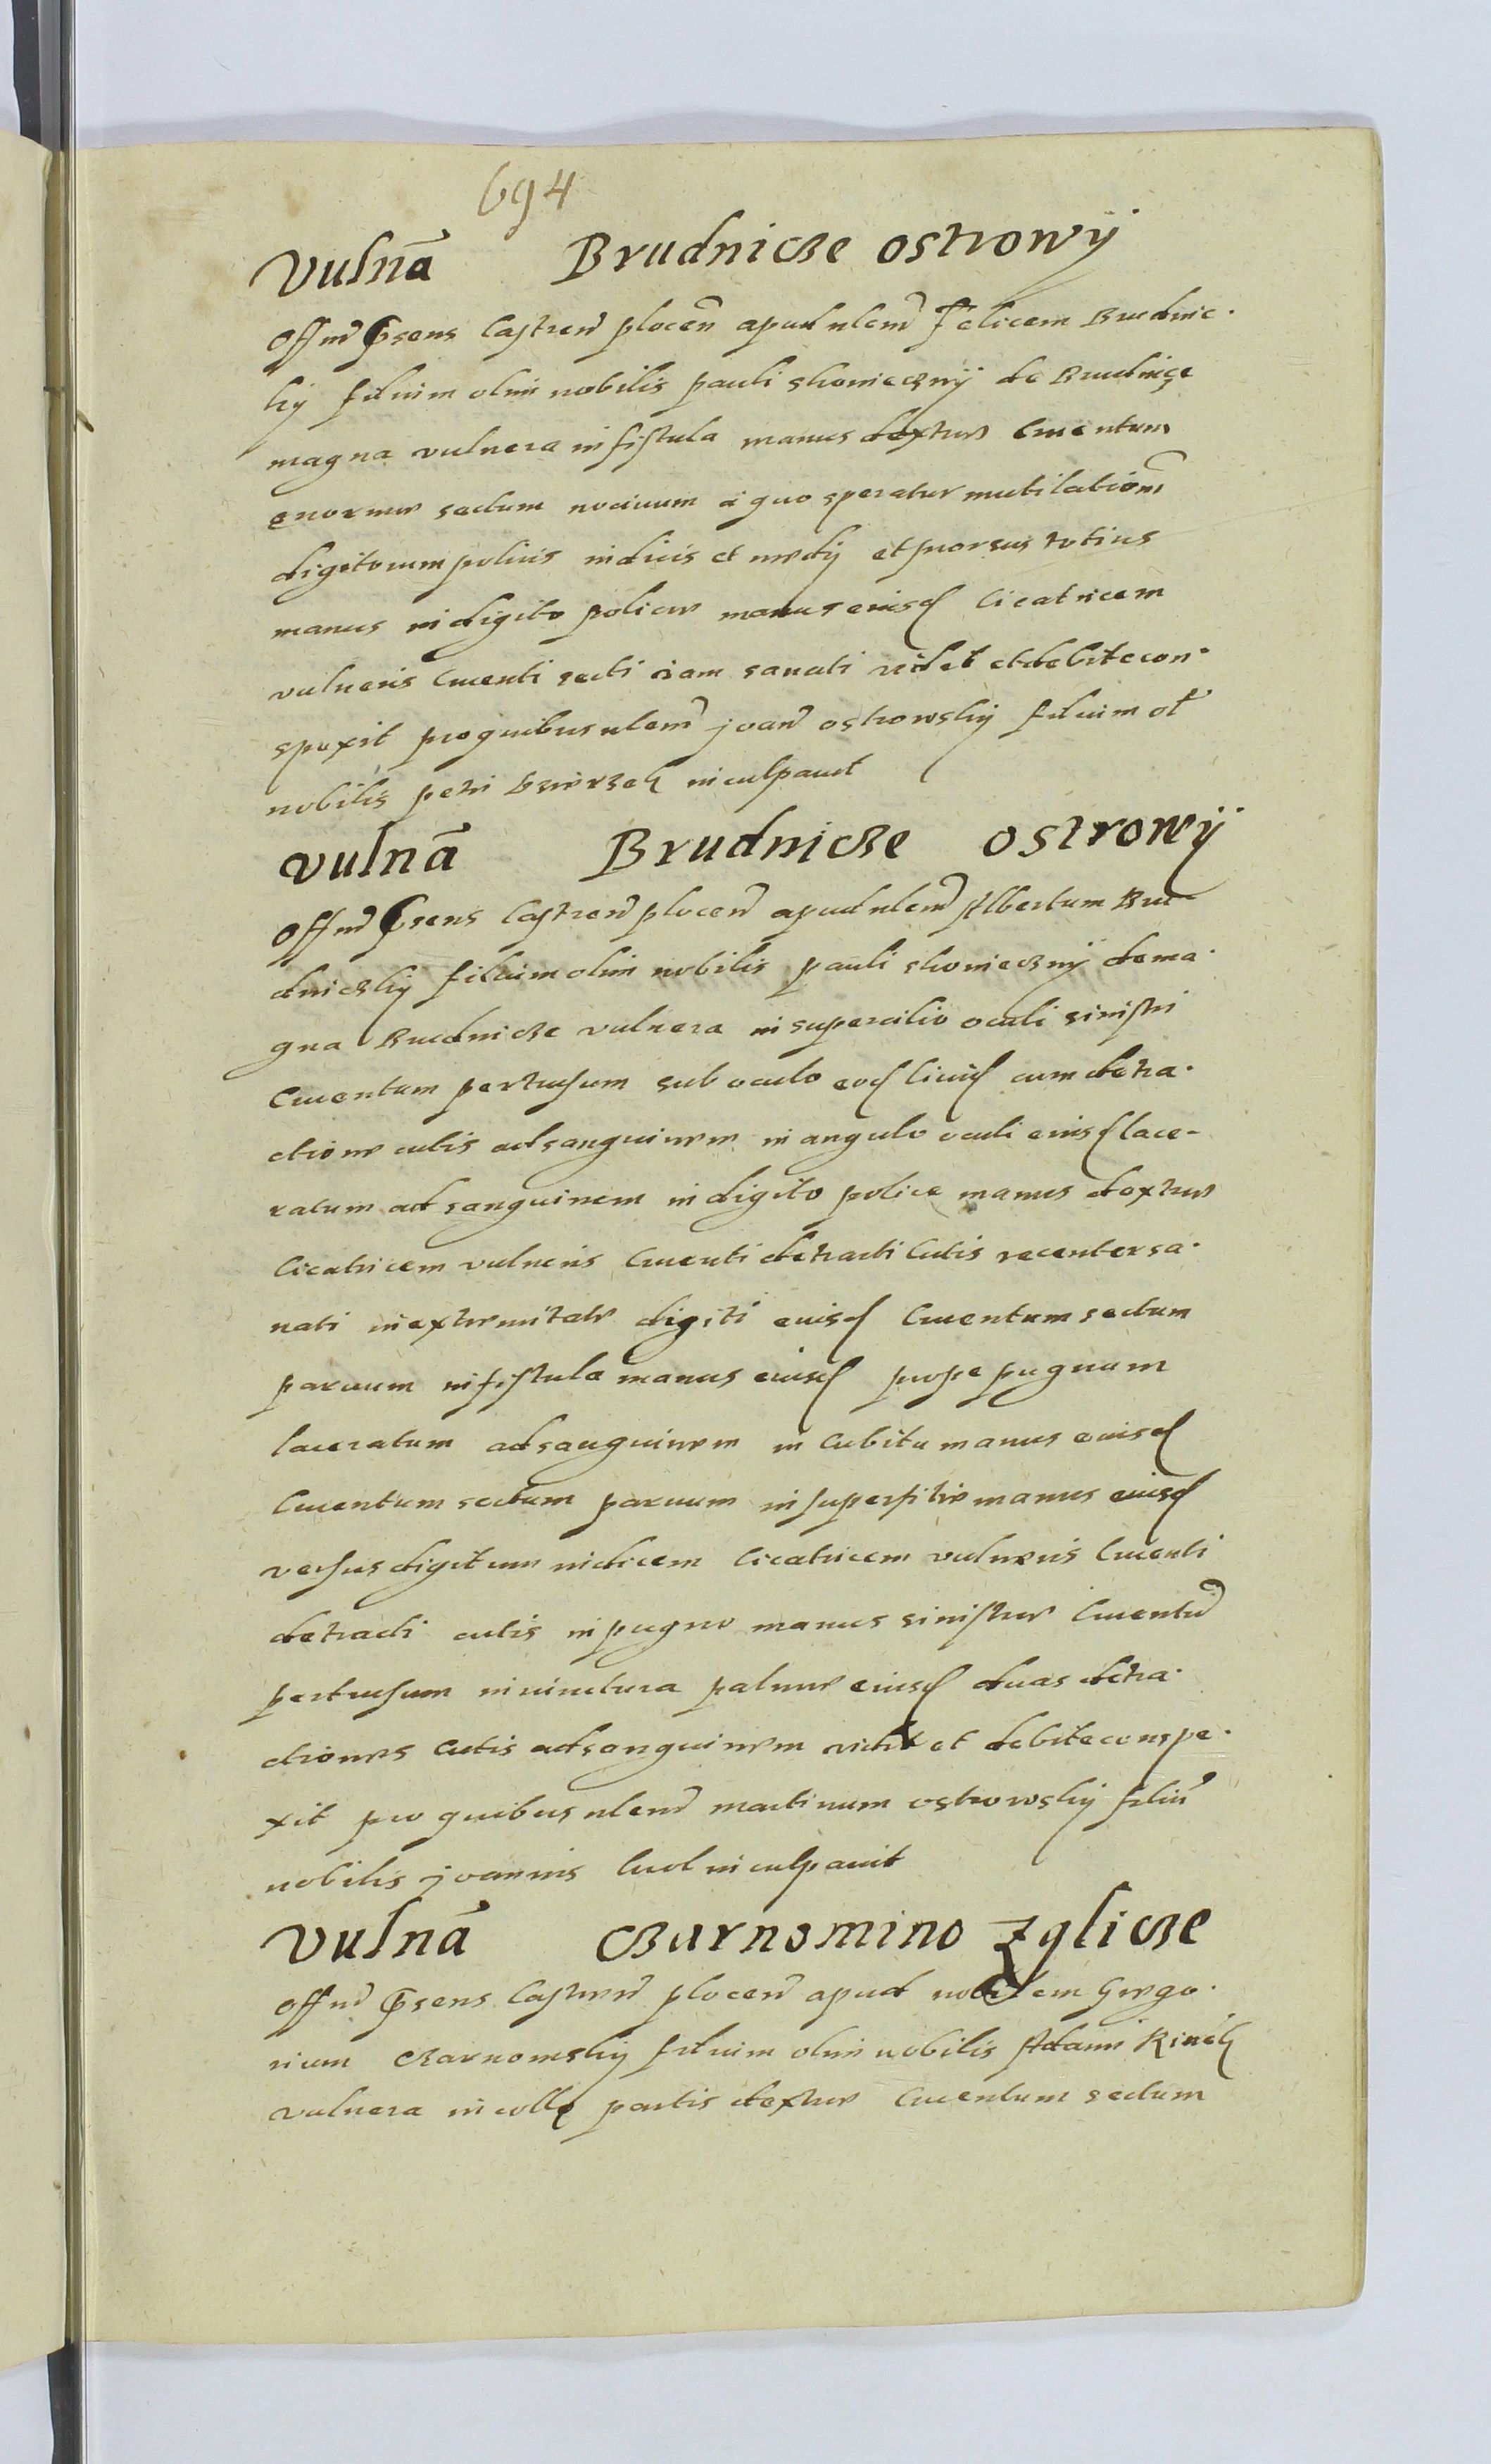 694
Vulnā Brudnicze ostrowÿ
Offm̄ Pr̄sens Castren̄ plocen̄ apud nlem̄ Felicem Brudnic·
kÿ filium olim nobilis pauli skonieczny de Brudnice
magna vulnera in fistula manus dextre Cruentum
enorme sectum nociuum a quo speratur mutilation̄
digitorum policis indicis et medÿ et prorsus totius
manus in digito police manus eiusd Cicatricem
vulneris Cruenti secti iam sanati videt et debite con·
spexit pro quibus nlem̄ joan̄ ostrowskÿ filium ol̄
nobilis petri inculpauit
vulnā Brudnicze ostrowÿ
Offm̄ Pr̄sens Castren̄ plocen̄ apud nlem̄ Albertum Bru
dniczkÿ filium olim nobilis pauli skonieczny de ma·
gna Brudnicze vulnera in supercilio oculi sinistri
Cruentum pertusum sub oculo eod liuid cum detra·
ctione cutis ad sanguinem in angulo oculi eiusd lace-
ratum ad sanguinem in digito police manus dextre
Cicatricem vulneris Cruenti detracti Cutis recenter sa·
nati in extremitate digiti eiusd Cruentum sectum
paruum in fistula manus eiusd prope pugnum
laceratum ad sanguinem in Cubitu manus eiusd
Cruentum sectum paruum in superfitie manus eiusd
versus digitum indicem Cicatricem vulneris Cruenti
detracti cutis in pugno manus sinistre Cruentū
pertusum in iunctura palme eiusd duas detra·
ctiones Cutis ad sanguinem vidit et debite conspe·
xit pro quibus nlem̄ martinum ostrowskÿ filiū
nobilis joannis inculpauit
Vulnā Czarnomino Zglicze
Offm̄ Pr̄sens Castren̄ plocen̄ apud nobilem Grego·
rium Czarnomskÿ filium olim nobilis Adami
vulnera in collo partis dextre Cruentum sectum